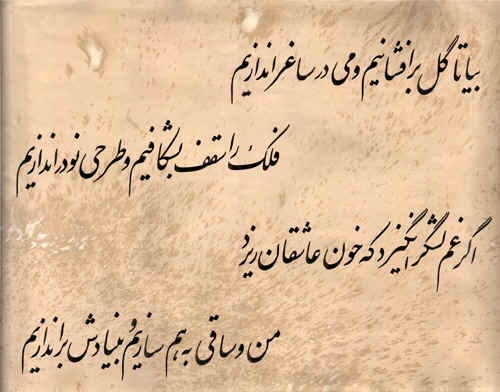 بیا تا گل برافشانیم و می در ساغر اندازیم
فلک را سقف بشکافیم و طرحی نو در اندازیم
اگر غم لشگر انگیزد که خون عاشقان ریزد
من و ساقی به هم سازیم و بنیادش براندازیم